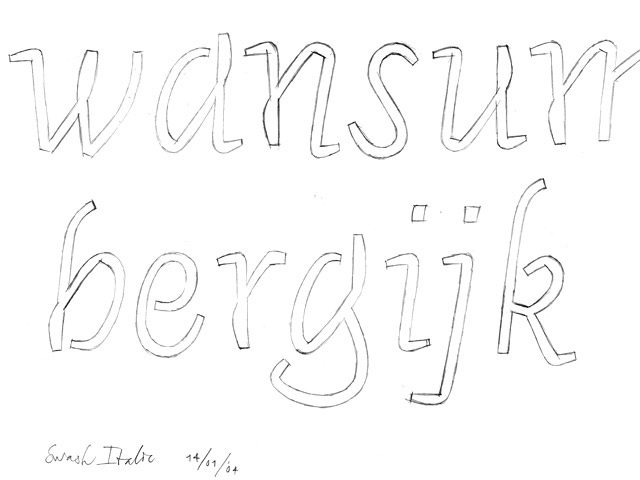 wansum
bergijk
Swash Italic 14/01/04